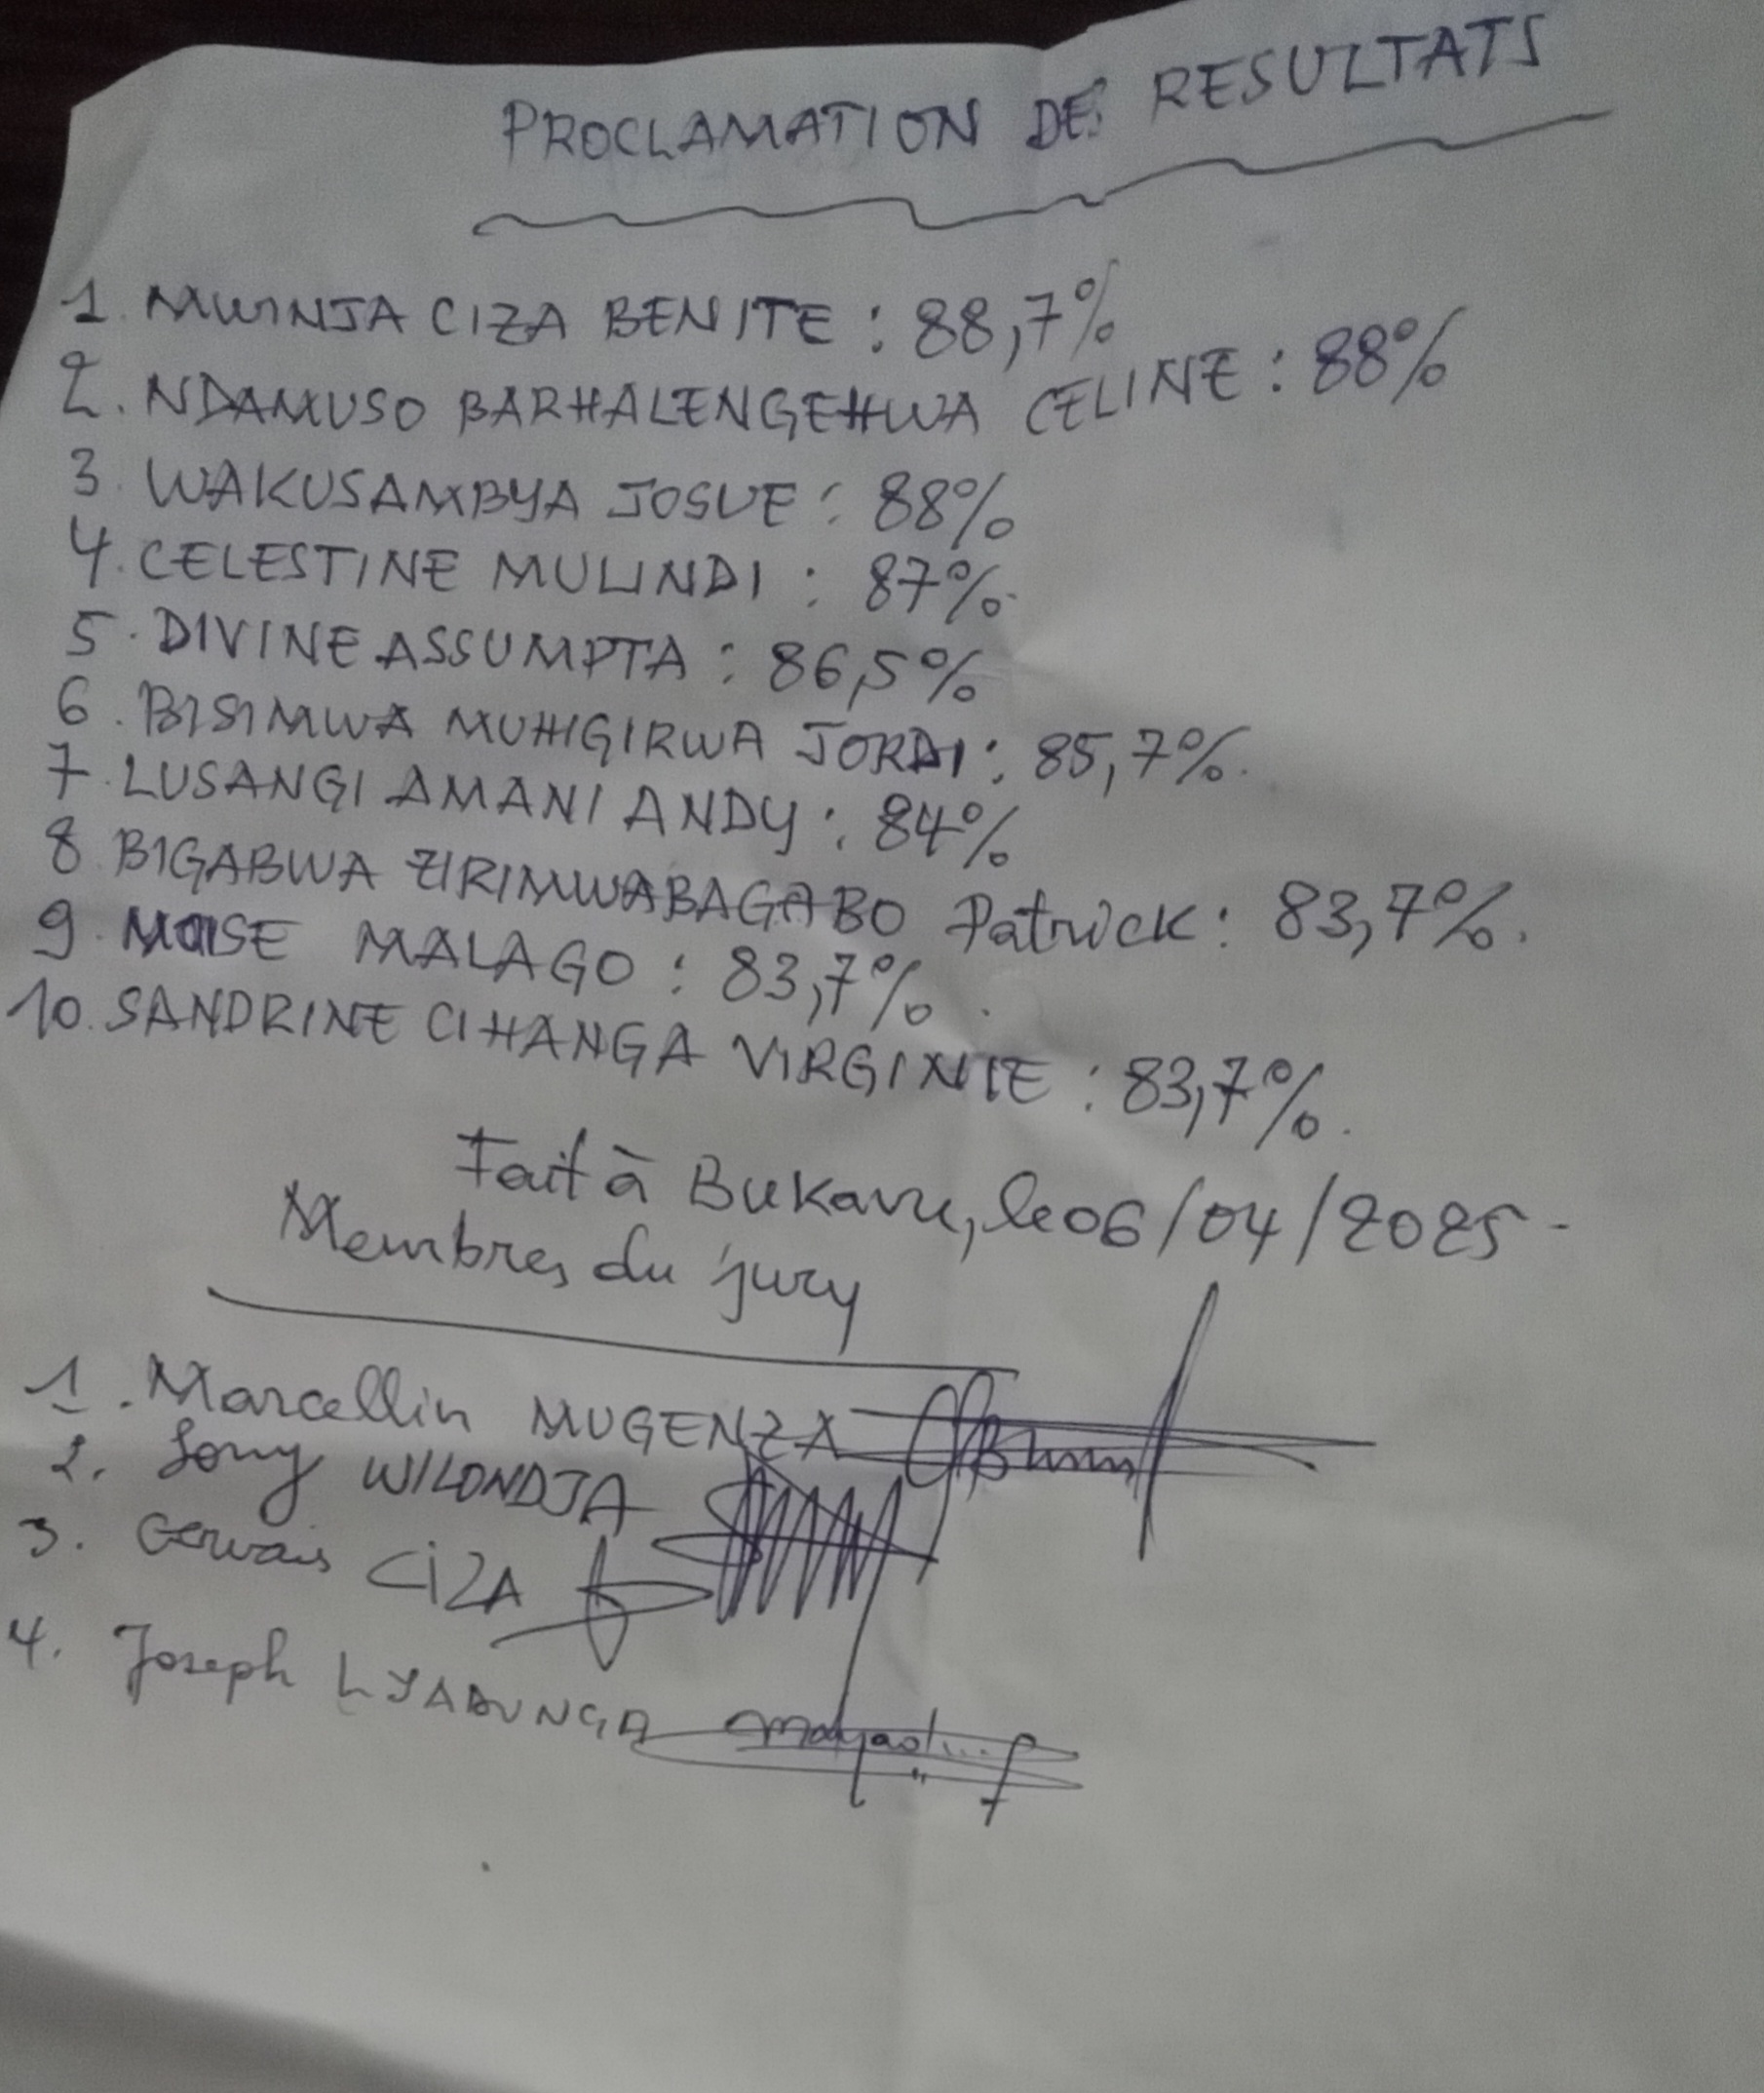 PROCLAMATION DES RESULTATS
1. MWINJA CIZA BENITE : 88,7%
2. NDAMUSO BARHALENGEHWA CELINE : 88%
3. WAKUSAMBYA JOSUE : 88%
4. CELESTINE MULINDI : 87%
5. DIVINE ASSUMPTA : 86,5%
6. BISIMWA MUHIGIRWA JORDI : 85,7%.
7. LUSANGI AMANI ANDY : 84%
8. BIGABWA ZIRIMWABAGABO Patrick : 83,7%.
9. MOISE MALAGO : 83,7%.
10. SANDRINE CIHANGA VIRGINIE : 83,7%.
Fait à Bukavu, le 06/04/2025-
Membres du jury
1. Marcellin MUGENZA
2. WILONDJA
3. Gervais CIZA
4. Joseph LYABUNGA